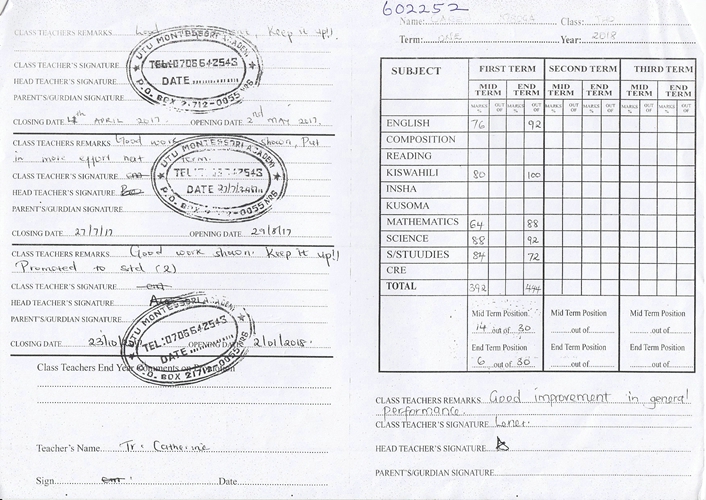 CLASS TEACHERS REMARKS Good Keep it up!!
CLASS TEACHER'S SIGNATURE
HEAD TEACHER'S SIGNATURE
PARENT'S/GURDIAN SIGNATURE
UTU MONTESSORI ACADEMY
TEL:0706642543
DATE
P.O. BOX 2712-0055 NRB
CLOSING DATE 4th APRIL 2017. OPENING DATE 2nd MAY 2017.
CLASS TEACHERS REMARKS Good work shown, Put
in more effort next term.
CLASS TEACHER'S SIGNATURE
HEAD TEACHER'S SIGNATURE
PARENT'S/GURDIAN SIGNATURE
UTU MONTESSORI ACADEMY
DATE 27/7/2017
CLOSING DATE 27/7/17 OPENING DATE 29/8/17
CLASS TEACHERS REMARKS Good work shown. Keep it up!!
Promoted to std (2)
CLASS TEACHER'S SIGNATURE
HEAD TEACHER'S SIGNATURE
PARENT'S/GURDIAN SIGNATURE
UTU MONTESSORI ACADEMY
TEL:0706642543
DATE
CLOSING DATE 23/10 OPENING DATE 2/01/2018.
Class Teachers End Year Comments on
Teacher's Name Tr: Catherine
Sign Date
602252
Name: Class: Two
Term: ONE Year: 2018
SUBJECT FIRST TERM SECOND TERM THIRD TERM
MID TERM END TERM MID TERM END TERM MID TERM END TERM
MARKS % OUT OF MARKS % OUT OF MARKS % OUT OF MARKS % OUT OF MARKS % OUT OF MARKS % OUT OF
ENGLISH 76 92
COMPOSITION
READING
KISWAHILI 80 100
INSHA
KUSOMA
MATHEMATICS 64 88
SCIENCE 88 92
S/STUUDIES 84 72
CRE
TOTAL 392 444
Mid Term Position Mid Term Position Mid Term Position
14 out of 30 out of out of
End Term Position End Term Position End Term Position
6 out of 30 out of out of
CLASS TEACHERS REMARKS Good improvement in general
performance.
CLASS TEACHER'S SIGNATURE
HEAD TEACHER'S SIGNATURE
PARENT'S/GURDIAN SIGNATURE